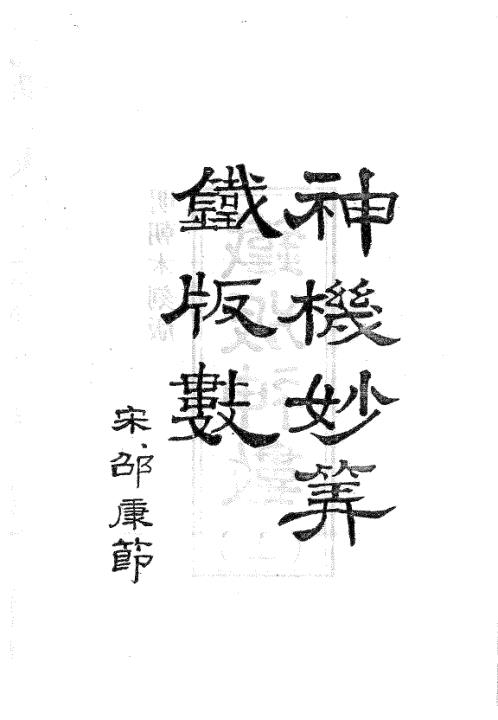 神機妙筭
鐵版數
宋·邵康節